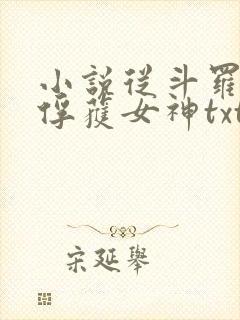 小說從斗羅
俘獲女神txt
宋延舉